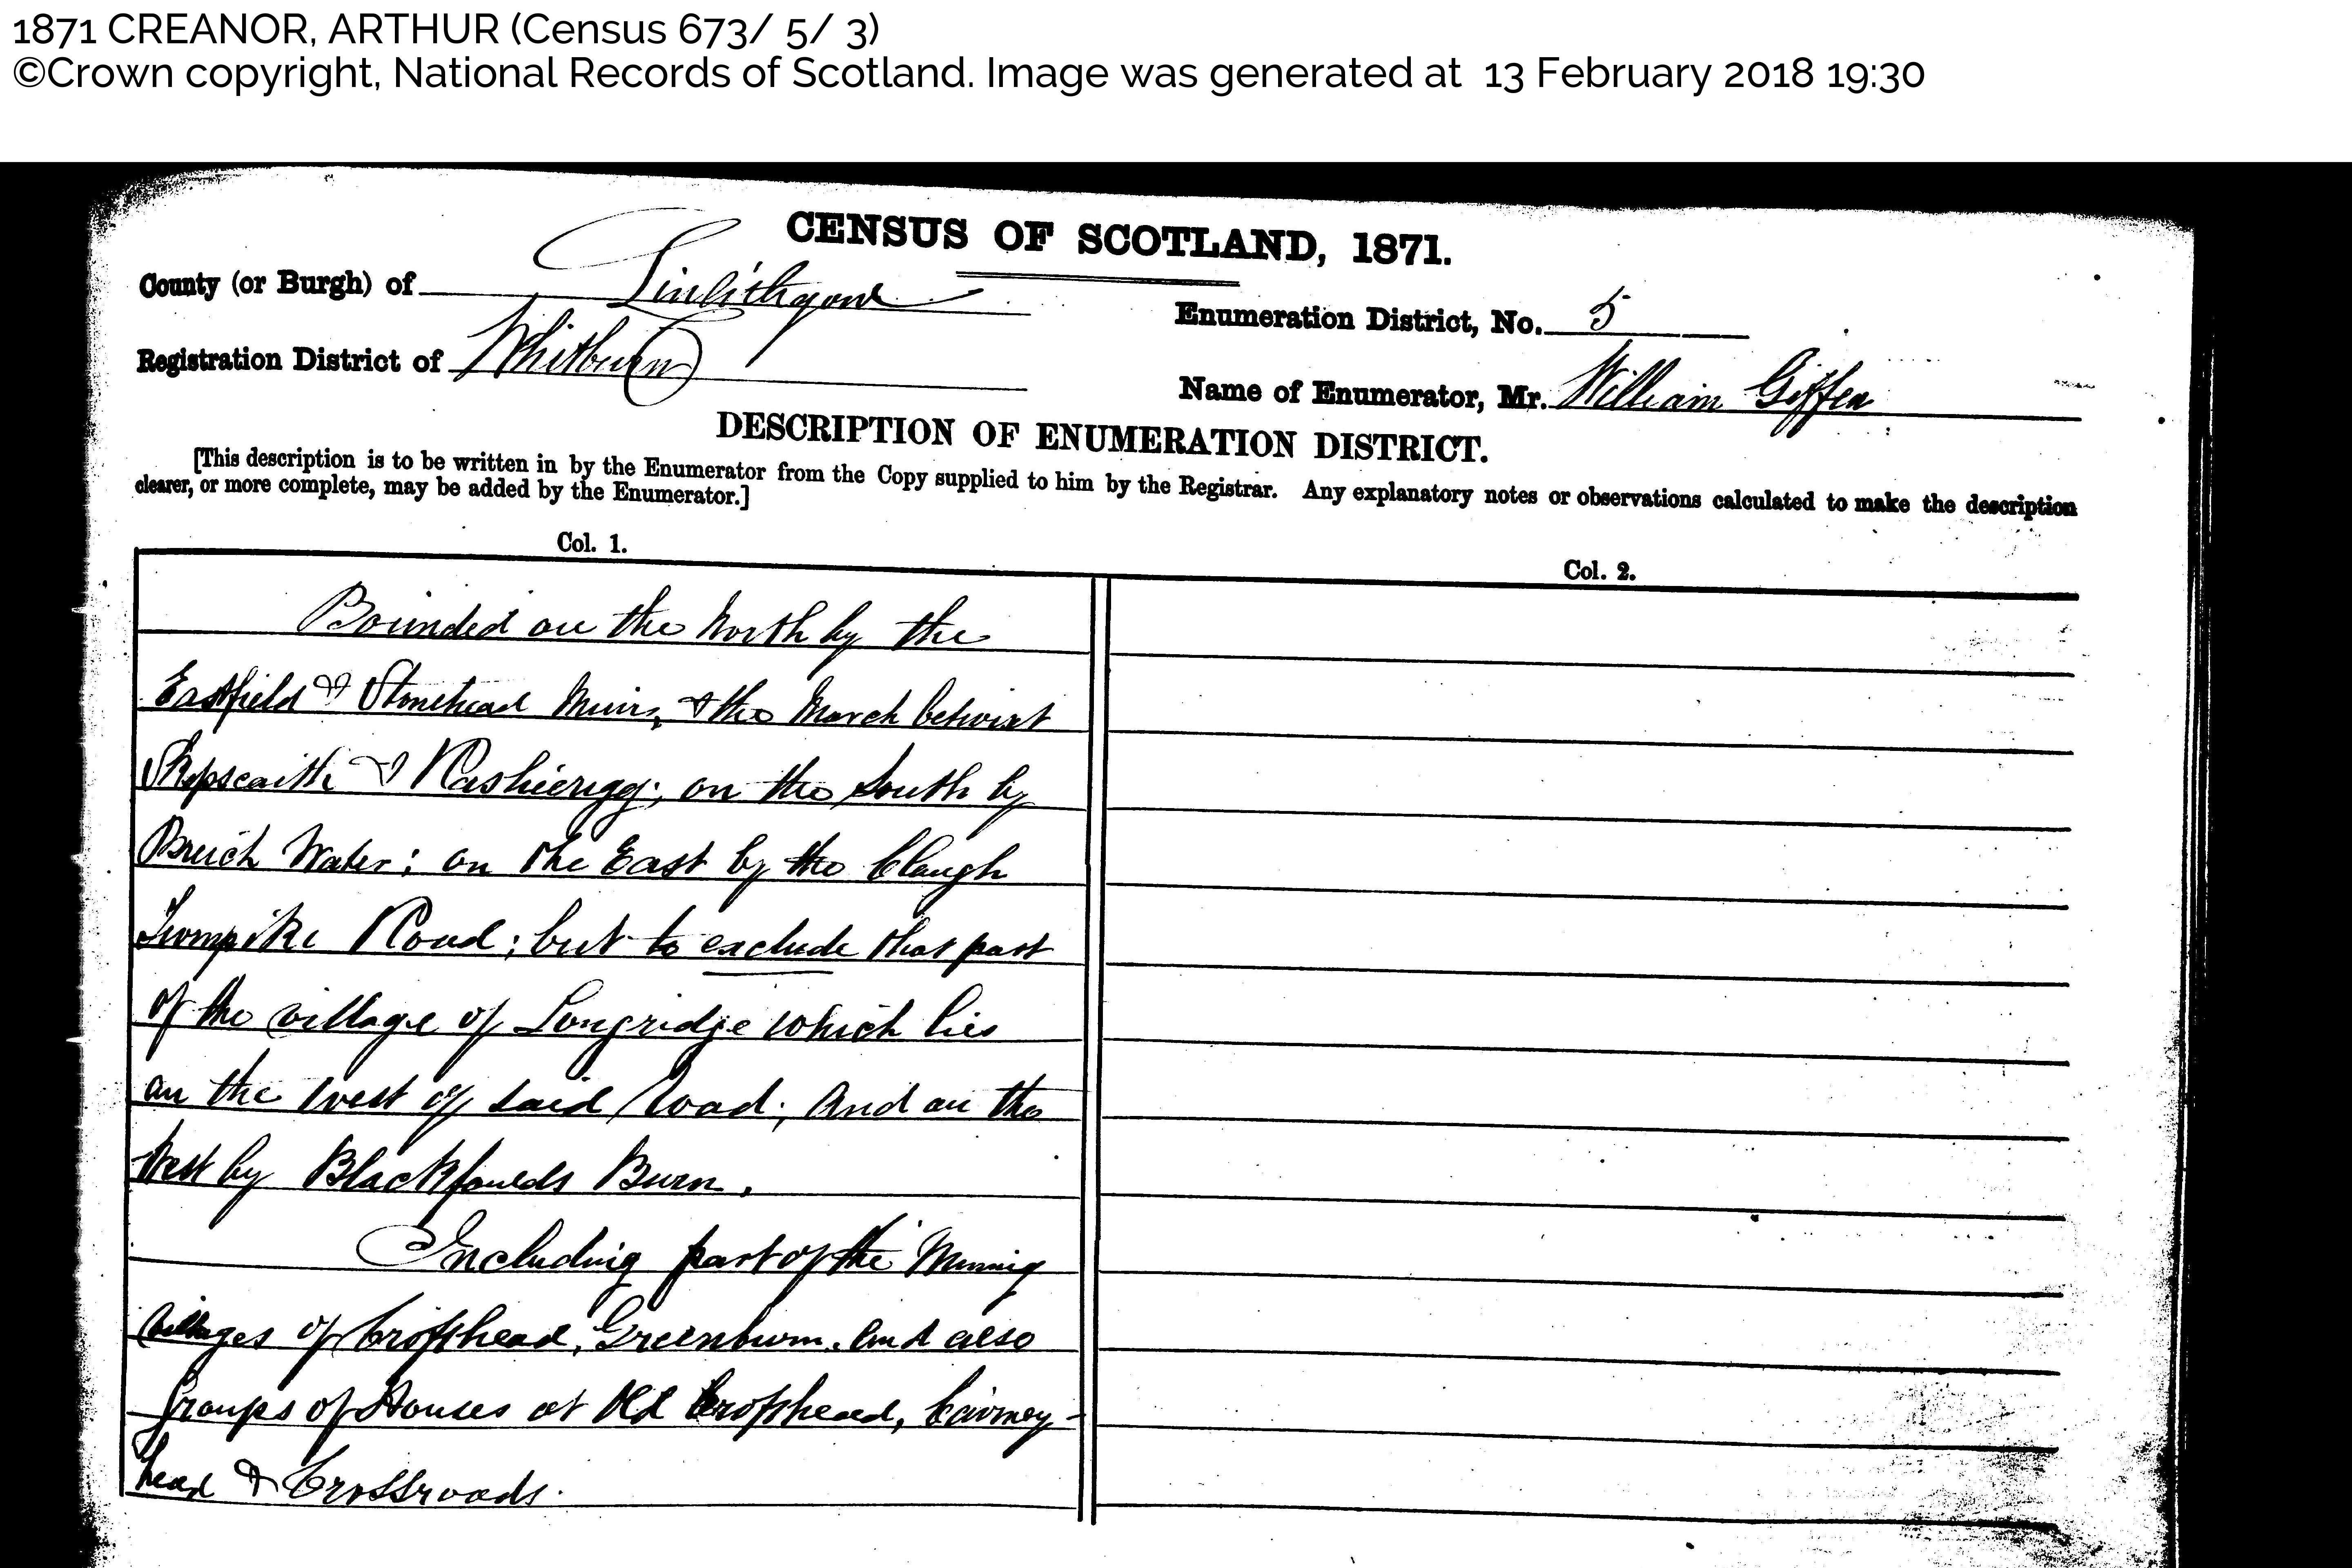 1871 CREANOR, ARTHUR (Census 673/ 5/ 3)
©Crown copyright, National Records of Scotland. Image was generated at 13 February 2018 19:30
CENSUS OF SCOTLAND, 1871.
County (or Burgh) of Linlithgow
Enumeration District, No. 5
Registration District of Whitburn
Name of Enumerator, Mr. William Giffen
DESCRIPTION OF ENUMERATION DISTRICT.
[This description is to be written in by the Enumerator from the Copy supplied to him by the Registrar. Any explanatory notes or observations calculated to make the description
clearer, or more complete, may be added by the Enumerator.]
Col. 1.
Col. 2.
Bounded on the North by the
Eastfield & Stonehead Muirs, & the March betwixt
& Rashierigg; on the South by
Breich Water; on the East by the Cleugh
Turnpike Road; but to exclude that part
of the village of Longridge which lies
on the West of said Road; And on the
West by Blackfaulds Burn.
Including part of the Mining
Villages of Crofthead, Greenburn. And also
groups of Houses at Old Crofthead, Cairney-
head & Crossroads.